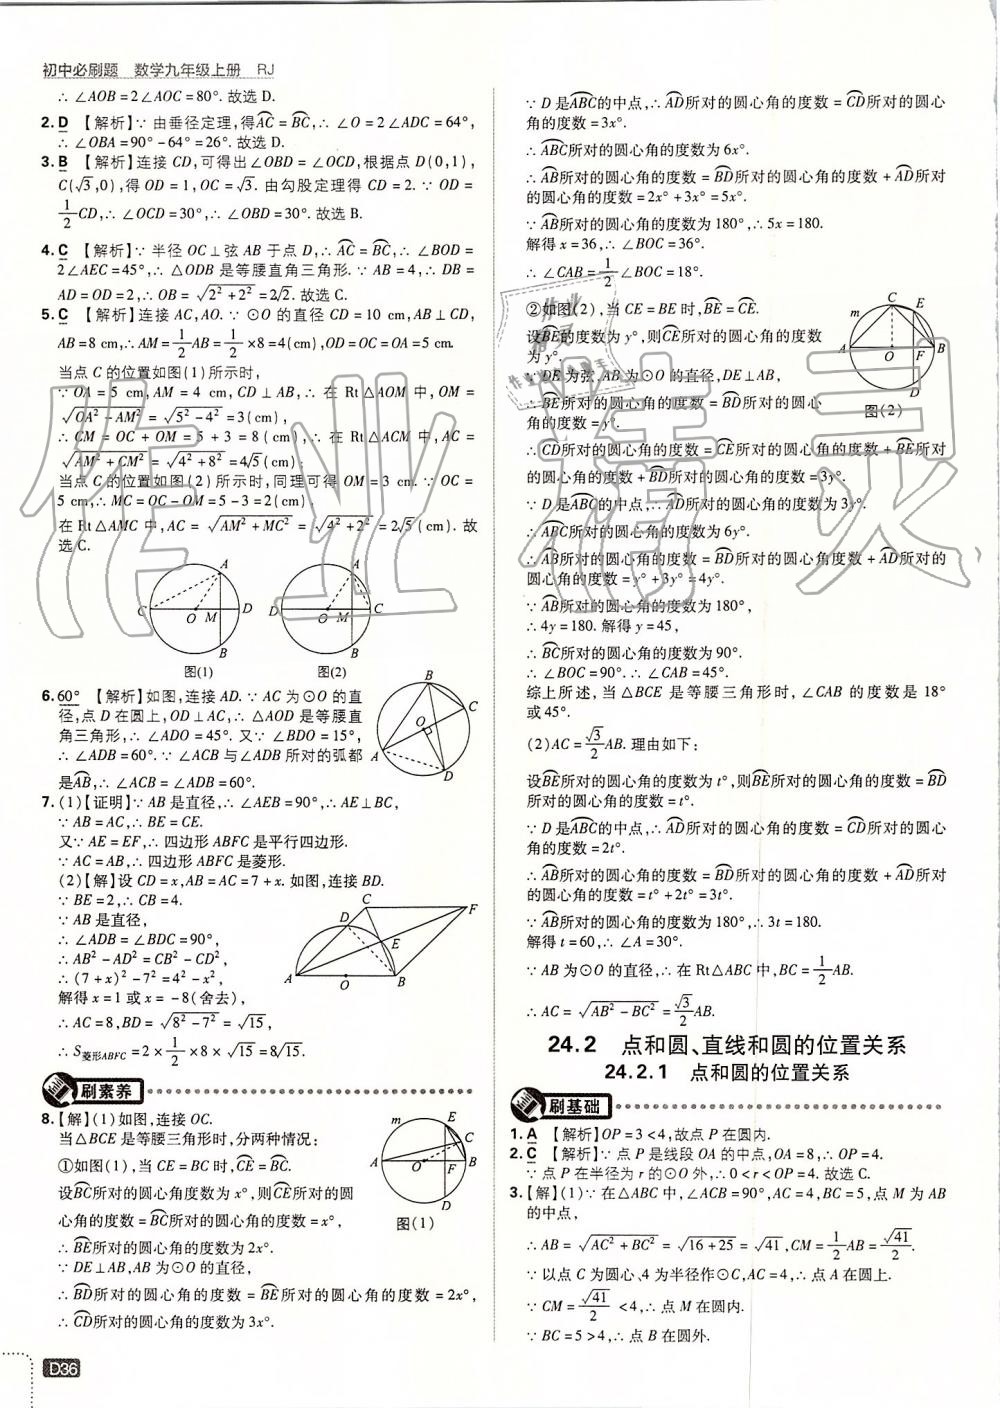 初中必刷题　数学九年级上册　RJ
∴ ∠AOB=2∠AOC=80°. 故选 D.
2. D 【解析】∵ 由垂径定理,得⌒AC=⌒BC,∴ ∠O=2∠ADC=64°,
∴ ∠OBA=90°-64°=26°. 故选 D.
3. B 【解析】连接 CD,可得出∠OBD=∠OCD,根据点 D(0,1),
C(√3,0),得 OD=1,OC=√3. 由勾股定理得 CD=2. ∵ OD=
1/2 CD,∴ ∠OCD=30°,∴ ∠OBD=30°. 故选 B.
4. C 【解析】∵ 半径 OC⊥弦 AB 于点 D,∴ ⌒AC=⌒BC,∴ ∠BOD=
2∠AEC=45°,∴ △ODB 是等腰直角三角形. ∵ AB=4,∴ DB=
AD=OD=2,∴ OB=√(2²+2²)=2√2. 故选 C.
5. C 【解析】连接 AC,AO. ∵ ⊙O 的直径 CD=10 cm,AB⊥CD,
AB=8 cm,∴ AM=1/2 AB=1/2×8=4(cm),OD=OC=OA=5 cm.
当点 C 的位置如图(1)所示时,
∵ OA=5 cm,AM=4 cm,CD⊥AB,∴ 在 Rt△AOM 中,OM=
√(OA²-AM²)=√(5²-4²)=3(cm),
∴ CM=OC+OM=5+3=8(cm),∴ 在 Rt△ACM 中,AC=
√(AM²+CM²)=√(4²+8²)=4√5(cm);
当点 C 的位置如图(2)所示时,同理可得 OM=3 cm. ∵ OC=
5 cm,∴ MC=OC-OM=5-3=2(cm),
在 Rt△AMC 中,AC=√(AM²+MC²)=√(4²+2²)=2√5(cm). 故
选 C.
A
C O M D
B
图(1)
A
D O M C
B
图(2)
6. 60° 【解析】如图,连接 AD. ∵ AC 为⊙O 的直
径,点 D 在圆上,OD⊥AC,∴ △AOD 是等腰直
角三角形,∴ ∠ADO=45°. 又∵ ∠BDO=15°,
∴ ∠ADB=60°. ∵ ∠ACB 与∠ADB 所对的弧都
是⌒AB,∴ ∠ACB=∠ADB=60°.
B
C
O
A
D
7. (1)【证明】∵ AB 是直径,∴ ∠AEB=90°,∴ AE⊥BC,
∵ AB=AC,∴ BE=CE.
又∵ AE=EF,∴ 四边形 ABFC 是平行四边形.
∵ AC=AB,∴ 四边形 ABFC 是菱形.
(2)【解】设 CD=x,AB=AC=7+x. 如图,连接 BD.
∵ BE=2,∴ CB=4.
∵ AB 是直径,
∴ ∠ADB=∠BDC=90°,
∴ AB²-AD²=CB²-CD²,
∴ (7+x)²-7²=4²-x²,
解得 x=1 或 x=-8(舍去),
∴ AC=8,BD=√(8²-7²)=√15,
∴ S菱形ABFC=2×1/2×8×√15=8√15.
C F
D
E
A O B
刷素养
8. 【解】(1)如图,连接 OC.
当△BCE 是等腰三角形时,分两种情况:
①如图(1),当 CE=BC 时,⌒CE=⌒BC.
设⌒BC所对的圆心角度数为 x°,则⌒CE所对的圆
心角的度数=⌒BC所对的圆心角的度数=x°,
∴ ⌒BE所对的圆心角的度数为 2x°.
∵ DE⊥AB,AB为⊙O 的直径,
∴ ⌒BD所对的圆心角的度数=⌒BE所对的圆心角的度数=2x°,
∴ ⌒CD所对的圆心角的度数为 3x°.
m E
C
A O F B
D
图(1)
D36
∵ D 是⌒ABC的中点,∴ ⌒AD所对的圆心角的度数=⌒CD所对的圆心
角的度数=3x°.
∴ ⌒ABC所对的圆心角的度数为 6x°.
∴ ⌒AB所对的圆心角的度数=⌒BD所对的圆心角的度数+⌒AD所对
的圆心角的度数=2x°+3x°=5x°.
∵ ⌒AB所对的圆心角的度数为 180°,∴ 5x=180.
解得 x=36,∴ ∠BOC=36°.
∴ ∠CAB=1/2∠BOC=18°.
②如图(2),当 CE=BE 时,⌒BE=⌒CE.
设⌒BE的度数为 y°,则⌒CE所对的圆心角的度数
为 y°.
∵ DE 为弦,AB 为⊙O 的直径,DE⊥AB,
∴ ⌒BE所对的圆心角的度数=⌒BD所对的圆心
角的度数=y°.
∴ ⌒CD所对的圆心角的度数=⌒CE所对的圆心角的度数+⌒BE所对
的圆心角的度数+⌒BD所对的圆心角的度数=3y°.
∵ D 是⌒ABC的中点,∴ ⌒AD所对的圆心角的度数为 3y°.
∴ ⌒ABC所对的圆心角的度数为 6y°.
∴ ⌒AB所对的圆心角的度数=⌒BD所对的圆心角度数+⌒AD所对的
圆心角的度数=y°+3y°=4y°.
∵ ⌒AB所对的圆心角的度数为 180°,
∴ 4y=180. 解得 y=45,
∴ ⌒BC所对的圆心角的度数为 90°.
∴ ∠BOC=90°. ∴ ∠CAB=45°.
综上所述,当△BCE 是等腰三角形时,∠CAB 的度数是 18°
或 45°.
C
E
m
A O F B
D
图(2)
(2)AC=√3/2 AB. 理由如下:
设⌒BE所对的圆心角的度数为 t°,则⌒BE所对的圆心角的度数=⌒BD
所对的圆心角的度数=t°.
∵ D 是⌒ABC的中点,∴ ⌒AD所对的圆心角的度数=⌒CD所对的圆心
角的度数=2t°.
∴ ⌒AB所对的圆心角的度数=⌒BD所对的圆心角的度数+⌒AD所对
的圆心角的度数=t°+2t°=3t°.
∵ ⌒AB所对的圆心角的度数为 180°,∴ 3t=180.
解得 t=60,∴ ∠A=30°.
∵ AB 为⊙O 的直径,∴ 在 Rt△ABC 中,BC=1/2 AB.
∴ AC=√(AB²-BC²)=√3/2 AB.
24.2　点和圆、直线和圆的位置关系
24.2.1　点和圆的位置关系
刷基础
1. A 【解析】OP=3<4,故点 P 在圆内.
2. C 【解析】∵ 点 P 是线段 OA 的中点,OA=8,∴ OP=4.
∵ 点 P 在半径为 r 的⊙O 外,∴ 0<r<OP=4. 故选 C.
3. 【解】(1)∵ 在△ABC 中,∠ACB=90°,AC=4,BC=5,点 M 为 AB
的中点,
∴ AB=√(AC²+BC²)=√(16+25)=√41,CM=1/2 AB=√41/2.
∵ 以点 C 为圆心、4 为半径作⊙C,AC=4,∴ 点 A 在圆上.
∵ CM=√41/2<4,∴ 点 M 在圆内.
∵ BC=5>4,∴ 点 B 在圆外.
作业精灵